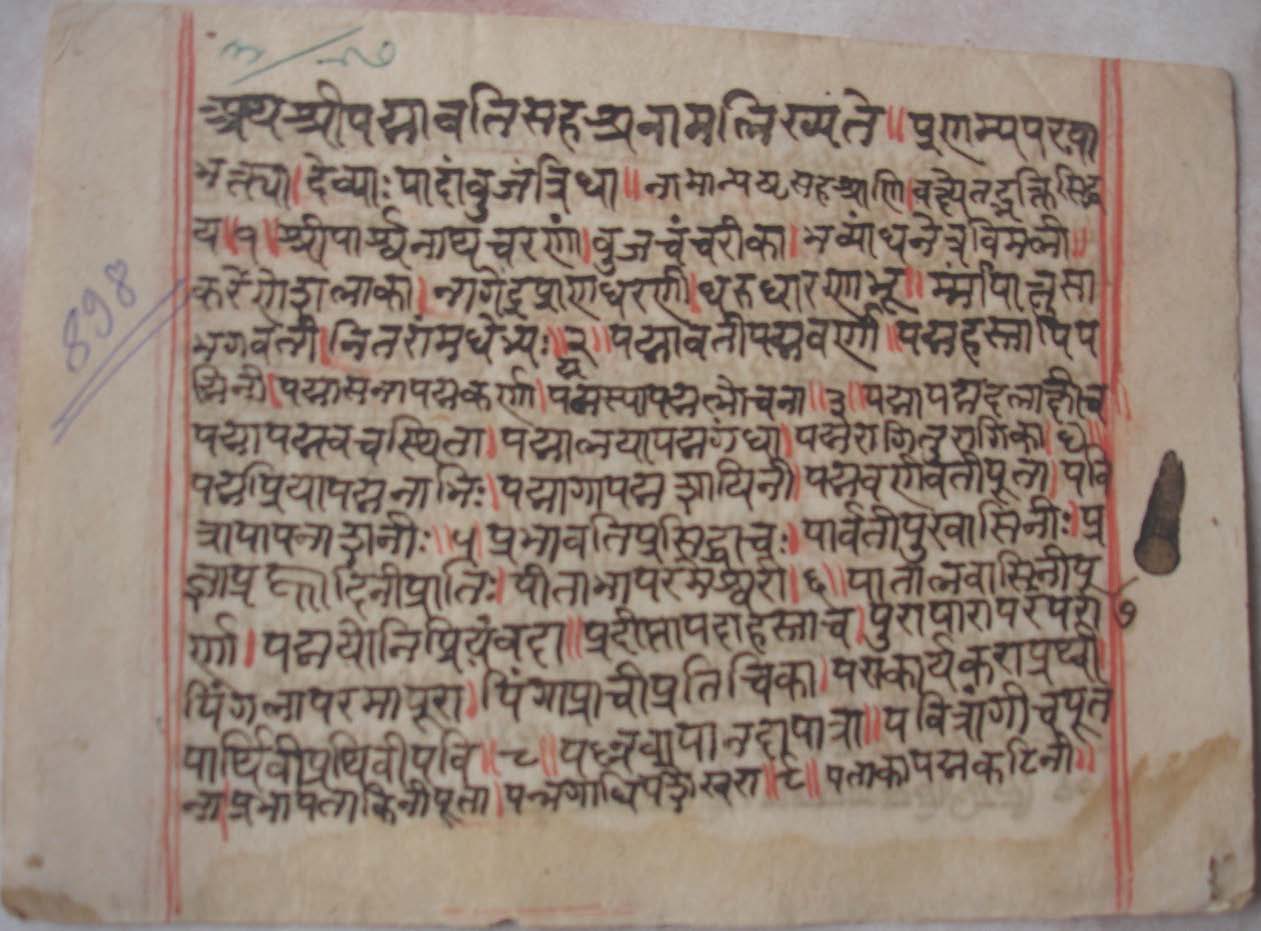 ३/२७
अथश्रीपद्मावतिसहश्रनामलिख्यंते॥प्रणम्यपरया
भक्त्या।देव्याःपादांवुजंत्रिधा॥नामान्यष्टसहश्राणि।वक्ष्येतद्भक्तिसिद्ध
य॥१॥श्रीपार्श्वनाथचरणां।वुजचंचरीका।भव्यांधनेत्रविमली॥
करणेशलाका।नागेंद्रप्राणधरणी।धरधारणभू॥र्म्मांपातुसा
भगवती।नितरांमघेभ्यः॥२॥पद्मावतीपद्मवर्णा॥पद्महस्तापिप
द्मिनी।पद्मासनापद्मकर्णा।पद्मस्यापद्मलोचना॥३॥पद्मापद्मदलाक्षीच
पद्मापद्मवचस्थिता।पद्मालयापद्मगंधा।पद्मरागितुरागिका।४॥
पद्मप्रियापद्मनाभिः।पद्मागापद्मशायिनी।पद्मवर्णवतीपूता।पवि
त्रापापनाशनीः॥५।प्रभावतिप्रसिद्धाचः।पार्वतीपुरवासिनीः।प्र
ज्ञाप्रह्लादिनीप्रातिः।पीताभापरमेश्वरी।६॥पातालवासिनीपू
र्णा।पद्मयोनिप्रियंवदा॥प्रदीप्तापदाहस्ताच।पुरापारापरंपरा ७
पिंगलापरमापूरा।पिंगाप्राचीप्रतिचिका।पराकार्यकराप्रथ्वी
पार्थिवीप्रथिवीपवि॥८॥पल्लवापानदापात्रा॥पवित्रांगीचपूत
ना।प्रभापताकिनीपूता।पन्नगाधिपशेस्वरा॥९॥पताकापद्मकटिनी॥
898